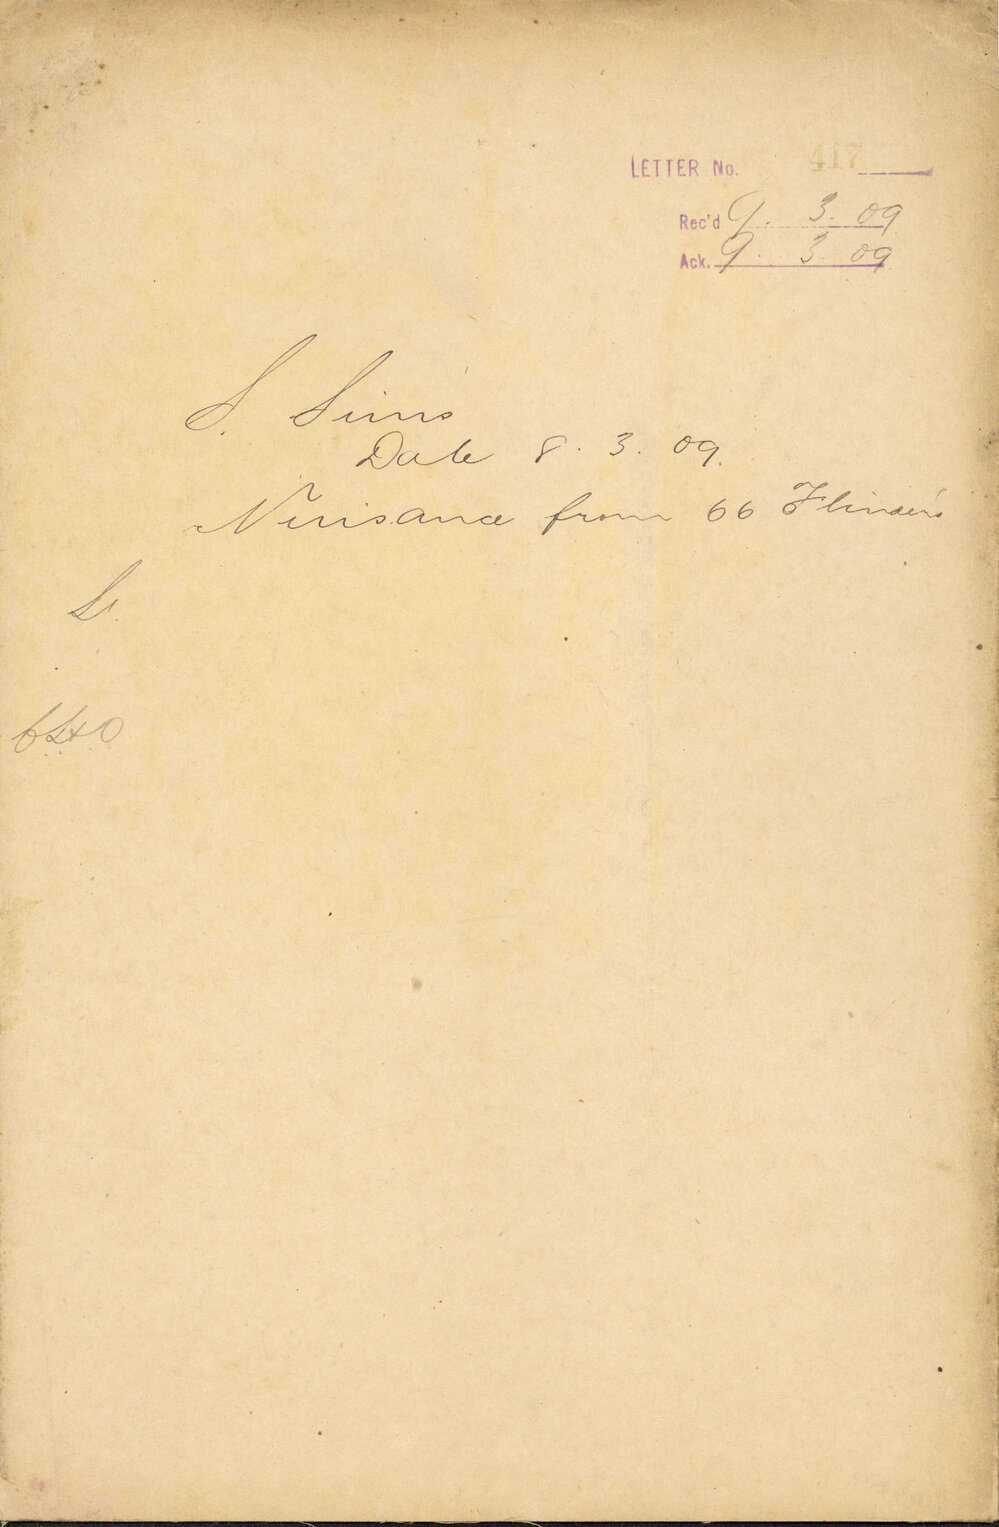 LETTER No. 417
Rec'd 9. 3. 09
Ack. 9. 3. 09
S. Sims
Date 8. 3. 09.
Nuisance from 66 Flinders